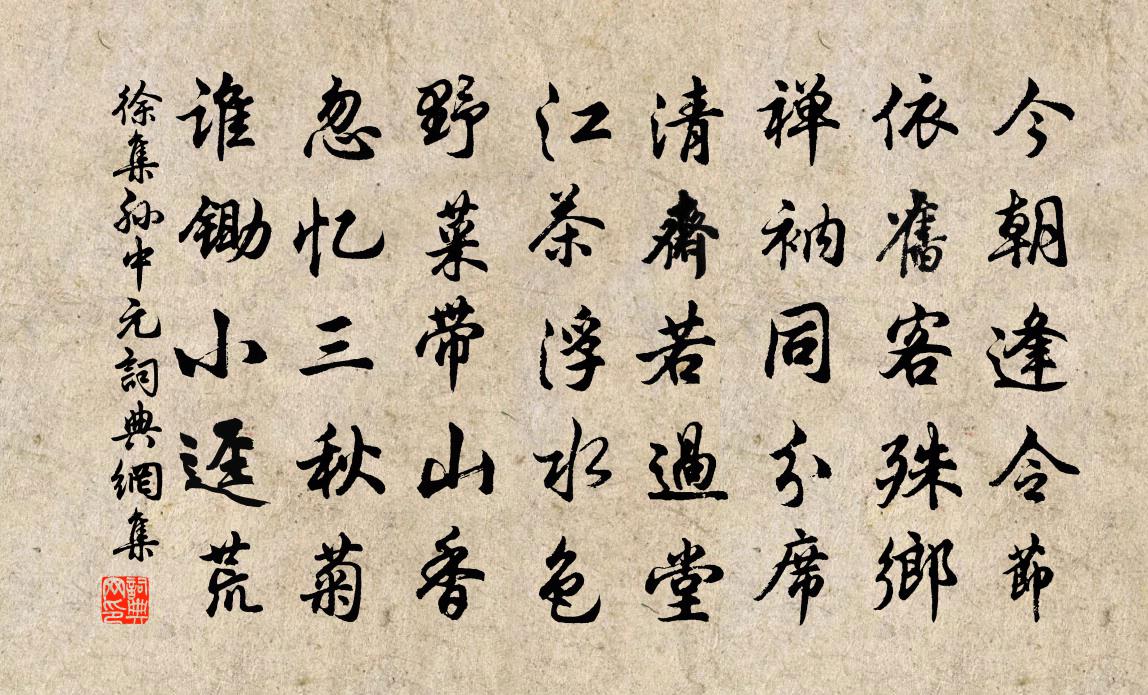 今朝逢令節
依舊客殊鄉
禅衲同分席
清齋若過堂
江茶浮水色
野菜帶山香
忽忆三秋菊
谁鋤小逕荒
徐集孙中元詞典網集
詞典网印